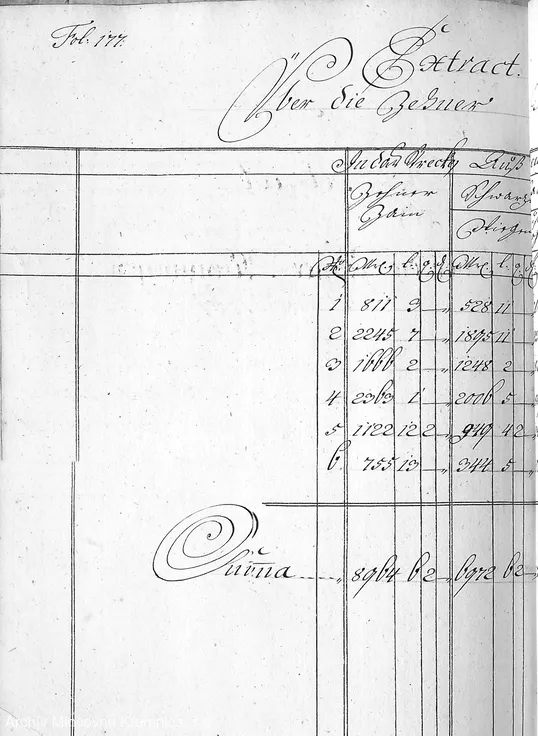 Fol: 177.
Extract.
Über die Zehner
In das Streck Auß
Zehner Schwarz
Zain
No. Mrc. l. q. d. Mrc. l. q. d.
1 811 9 — „ 528 11 —
2 2245 7 — „ 1895 11 —
3 1666 2 — „ 1248 2 —
4 2363 1 — „ 2006 5 —
5 1122 12 2 „ 949 4 2
6. 755 13 — „ 344 5 —
Summa „ 8964 6 2 — „ 6972 6 2 —
Archív Mincovne Kremnica